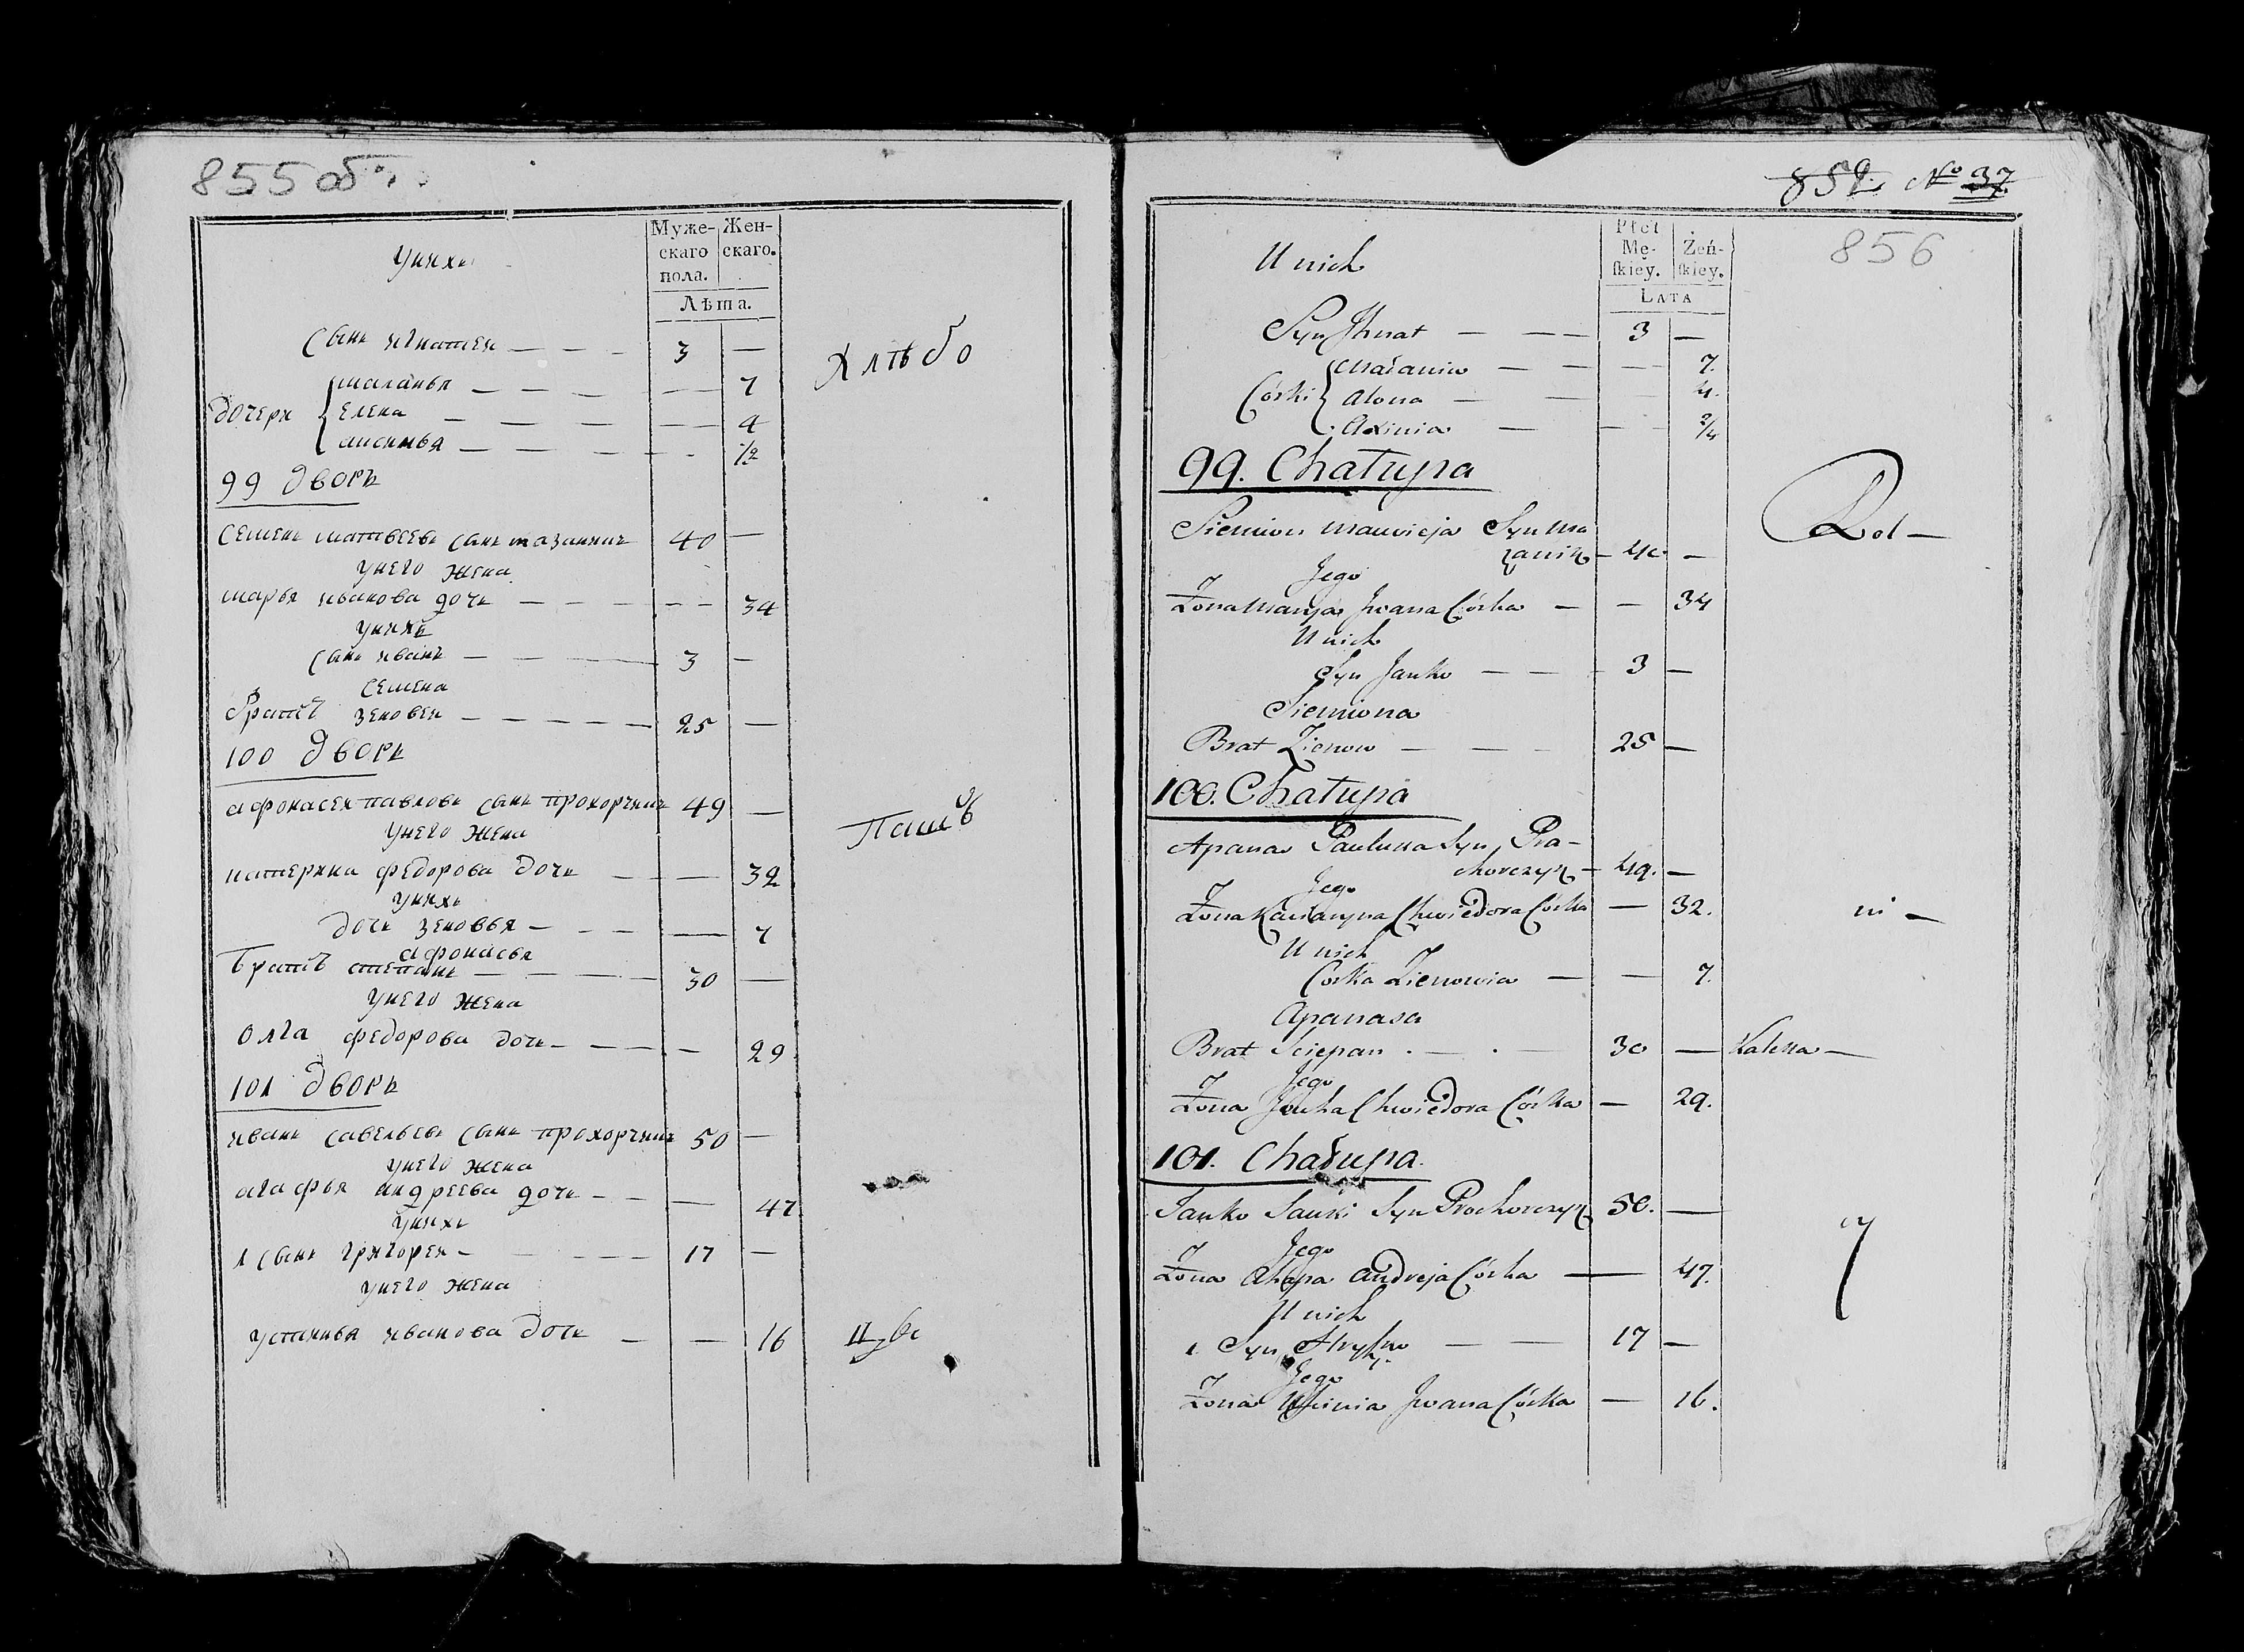 855 об.
Муже-
скаго
пола.
Жен-
скаго.
Лѣта.
унихъ
сынъ игнатеи — — — 3 —
дочери
маланья — — — — 7
Елена — — — — 4
аксинья — — — - ½
99 дворъ
семенъ матвѣевъ сынъ мазаникъ 40 —
унего жена
марья иванова дочь — — — — — 34
унихъ
сынъ иванъ — — — 3 —
семена
братъ зеновеи — — — — — 25 —
100 дворъ
афонасеи павловъ сынъ прохорчикъ 49 —
унего жена
катерина федорова дочь — — 32
унихъ
дочь зеновья — — — — 7
афонасья
братъ степанъ — — — — 30 —
унего жена
олга федорова дочь — — — — 29
101 дворъ
иванъ савельевъ сынъ прохорчикъ 50 —
унего жена
агафья андреева дочь — — — 47
унихъ
1 сынъ григореи — — — — 17 —
унего жена
устинья иванова дочь — — 16
хлѣбо
859. No 37
856
Płci
Mę-
ſkiey.
Żeń-
ſkiey.
LATA
U nich
Syn Ihnat — — — 3 —
Córki
Małania — — — 7.
Alona — — - 4.
Axinia — — - 2/4
99. Chałupa
Siemion Macwieja Syn Ma
zanik — 40. —
Jego
Żona Marya Jwana Córka — — 34
U nich
Syn Janko — — - 3 —
Siemiona
Brat Zienow — — - 25 —
100. Chałupa
Apanas Pauluka Syn Pra-
chorczyk — 49. —
Jego
Żona Kaciaryna Chwiedora Córka — 32.
U nich
Corka Zienowia — — 7.
Apanasa
Brat Sciepan . — . — 30 —
Jego
Żona Chwiedora Córka — 29.
101. Chałupa.
Janko Sauki Syn Prochorczyk 50. —
Jego
Żona Ahapa Andreja Córka — 47.
U nich
1. Syn — — 17 —
Jego
Żona Uscinia Jwana Córka — 16.